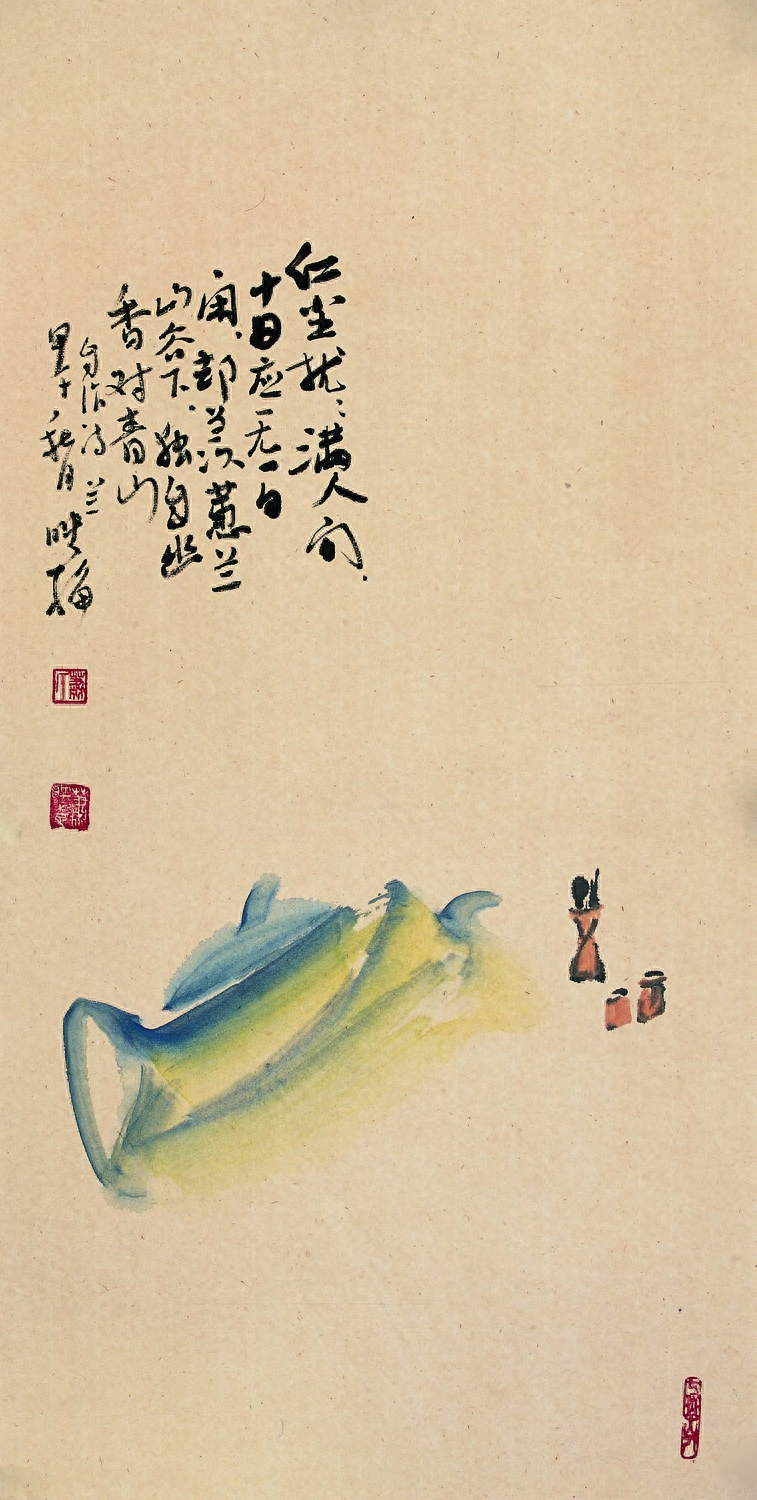 红尘扰々满人间
十日应无一日
闲却羡蕙兰
山谷下独自幽
香对青山
自作诗兰
秋月映梅